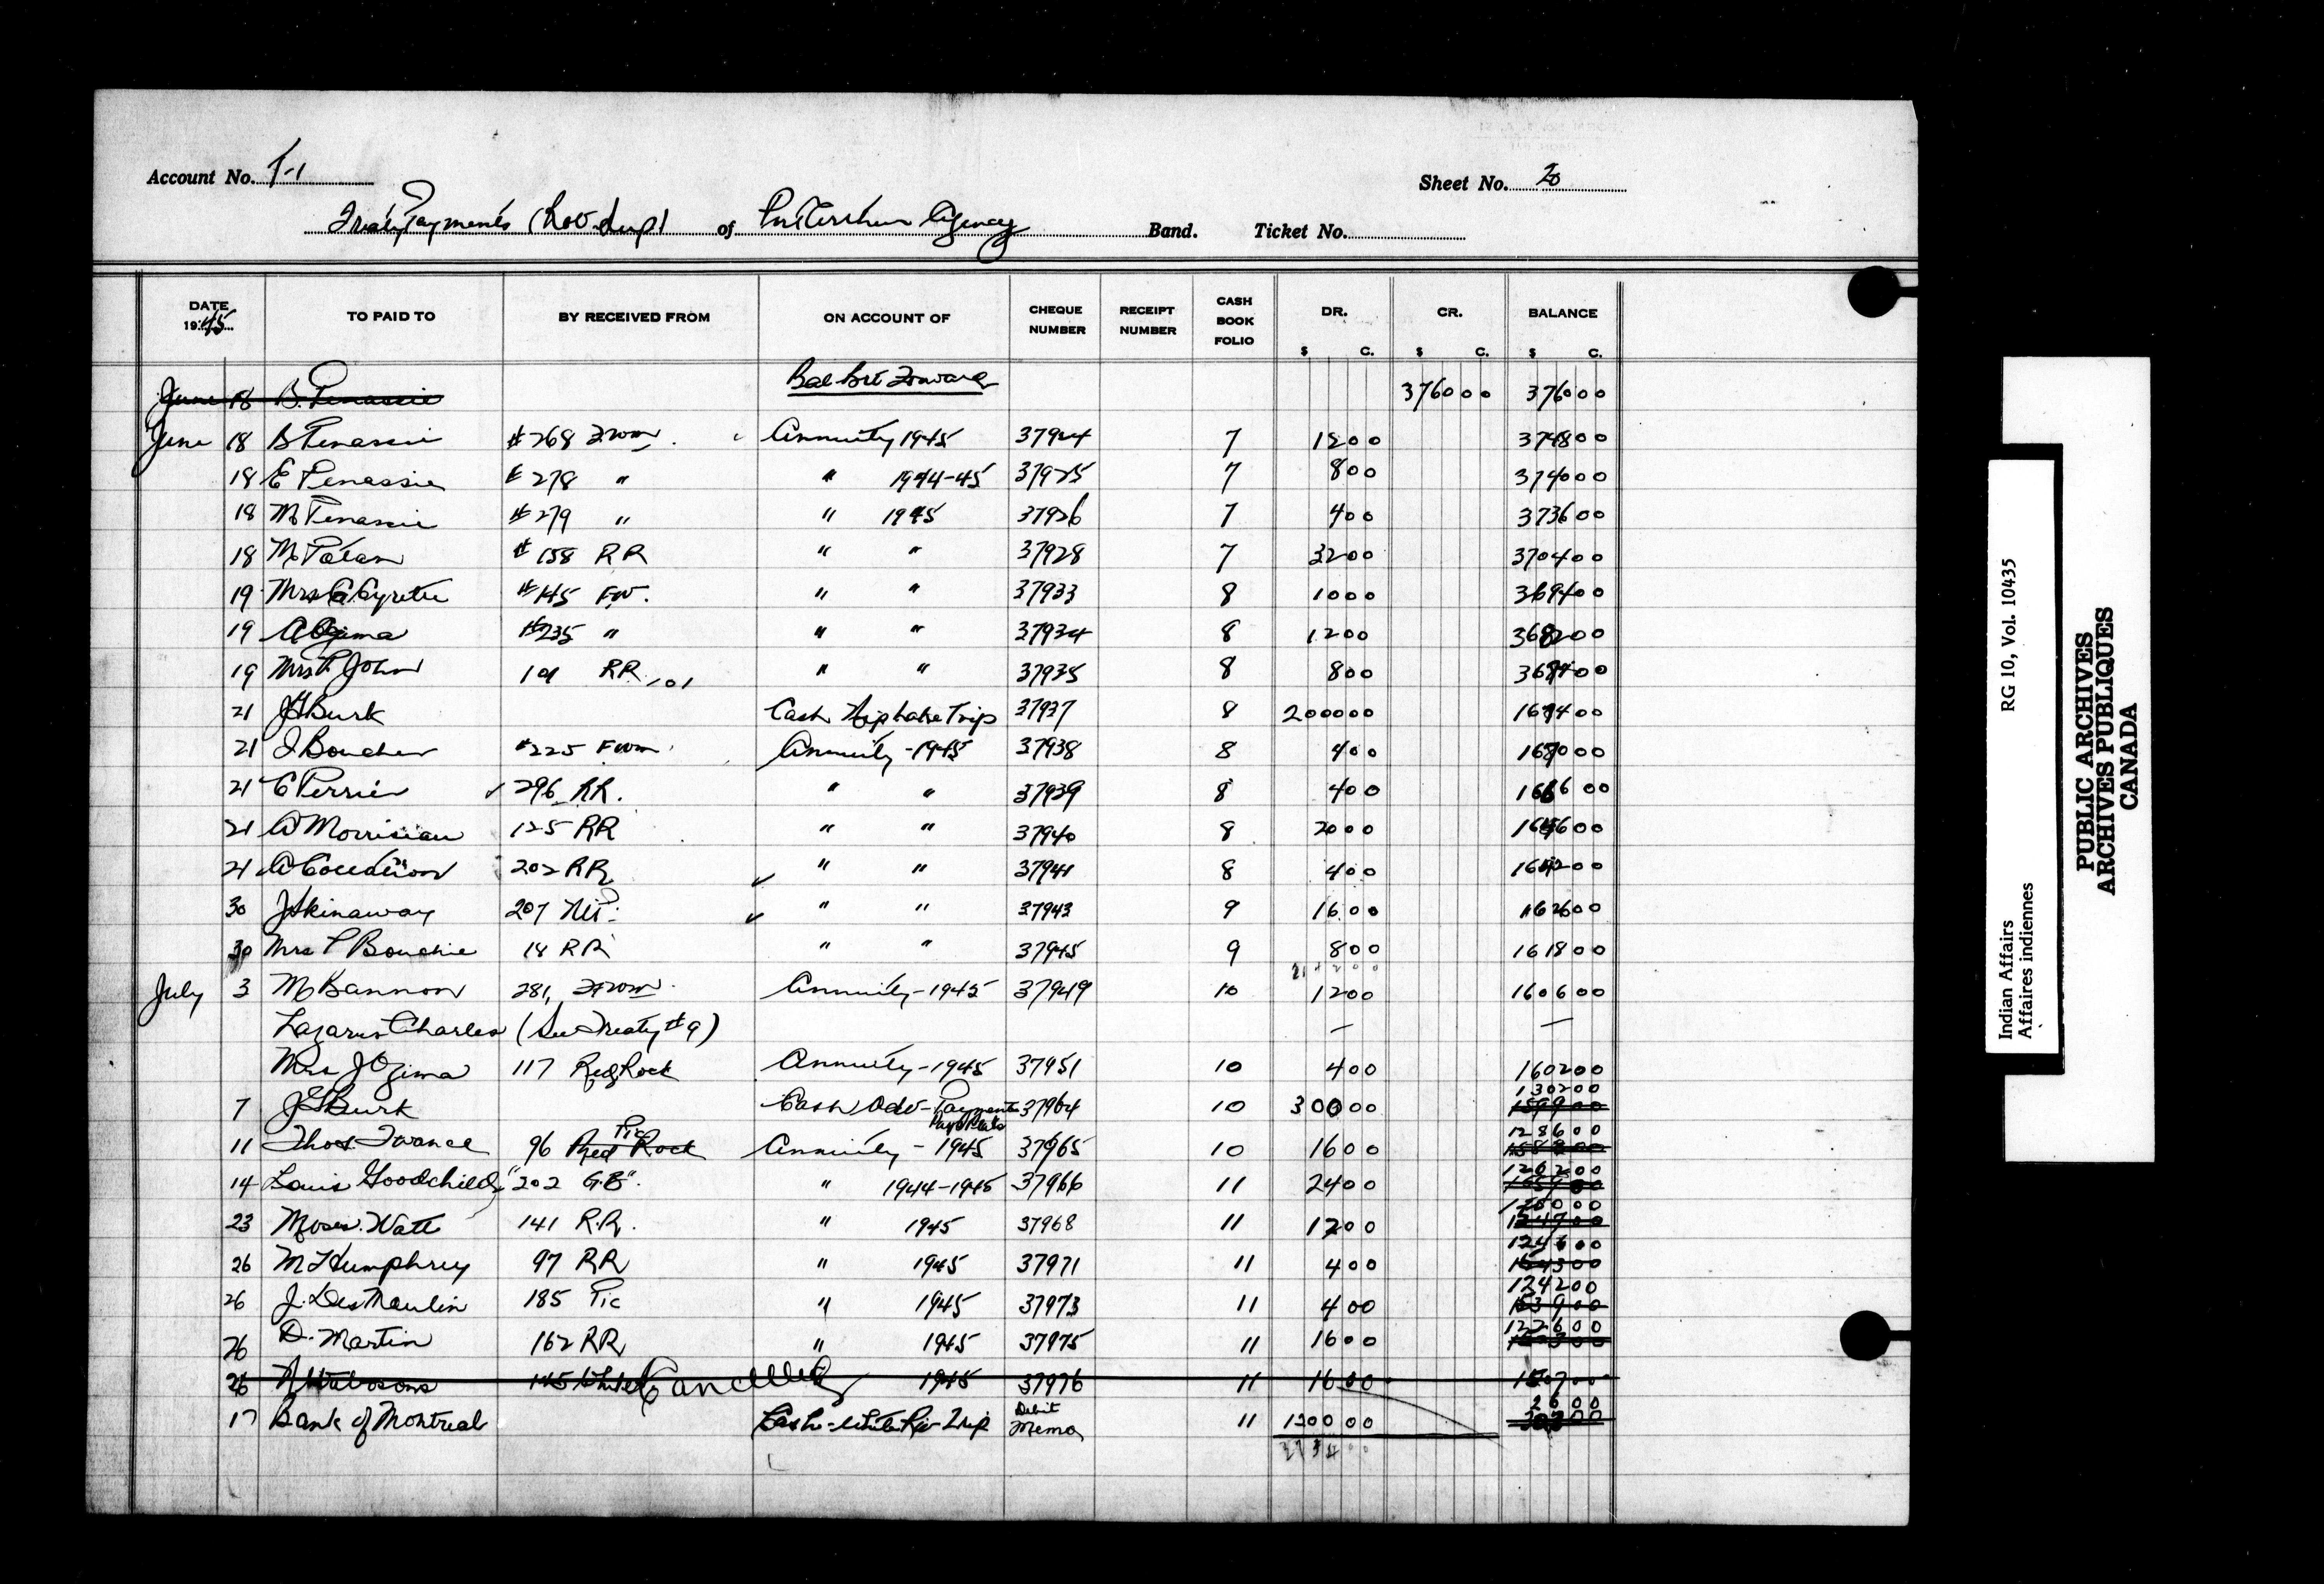 Account No. T-1
Sheet No. 20
Treaty Payments (Rob. Sup) of Port Arthur Agency Band. Ticket No.
DATE 1945 TO PAID TO BY RECEIVED FROM ON ACCOUNT OF CHEQUE NUMBER RECEIPT NUMBER CASH BOOK FOLIO DR. $ C. CR. $ C. BALANCE $ C.
June 18 B. Penassie Bal Brt Forward 3760 00 3760 00
June 18 B Penassie #268 Annuity 1945 37924 7 12 00 3748 00
18 E Penassie # 278 " " 1944-45 37925 7 8 00 3740 00
18 M Penassie # 279 " " 1945 37926 7 4 00 3736 00
18 M # 158 RR " " 37928 7 32 00 3704 00
19 Mrs #145 FW. " " 37933 8 10 00 3694 00
19 A Ogima #235 " " " 37934 8 12 00 3682 00
19 Mrs John 101 RR 101 " " 37935 8 8 00 3674 00
21 J G Burk Cash Trip 37937 8 2000 00 1674 00
21 J Boucher #225 Fwm Annuity - 1945 37938 8 4 00 1670 00
21 C Perrier 296 RR. " " 37939 8 4 00 1666 00
21 A Morriseau 125 RR " " 37940 8 20 00 1646 00
21 A 202 RR " " 37941 8 4 00 1642 00
30 J Skinaway 207 " " 37943 9 16 00 1626 00
30 Mrs P Bouchie 18 RR " " 37945 9 8 00 1618 00
July 3 M Bannon 281, Annuity - 1945 37949 10 12 00 1606 00
Lazarus Charles (See Treaty #9) — —
Mrs J Ogima 117 Red Rock Annuity - 1945 37951 10 4 00 1602 00
1302 00
7 J G Burk Cash Adv - Payments Pays Plat 37964 10 300 00 1599 00
1286 00
11 Thos. Twance 96 Red Rock Pic Annuity - 1945 37965 10 16 00
1262 00
14 Louis Goodchild "202 GB". " 1944-1945 37966 11 24 00
1250 00
23 Moses Watt 141 R.R. " 1945 37968 11 12 00
1246 00
26 M Humphrey 97 RR " 1945 37971 11 4 00
1242 00
26 J. Des Moulin 185 Pic " 1945 37973 11 4 00
1226 00
26 D. Martin 162 RR " 1945 37975 11 16 00
26 145 Cancelled 1945 37976 11 16 00 1507 00
26 00
17 Bank of Montreal Cash - White Riv Trip Debit Memo 11 1200 00
RG 10, Vol. 10435
Indian Affairs
Affaires indiennes
PUBLIC ARCHIVES
ARCHIVES PUBLIQUES
CANADA